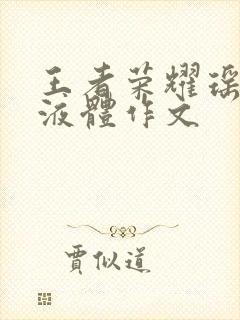 王者荣耀瑶
液體作文
賈似道